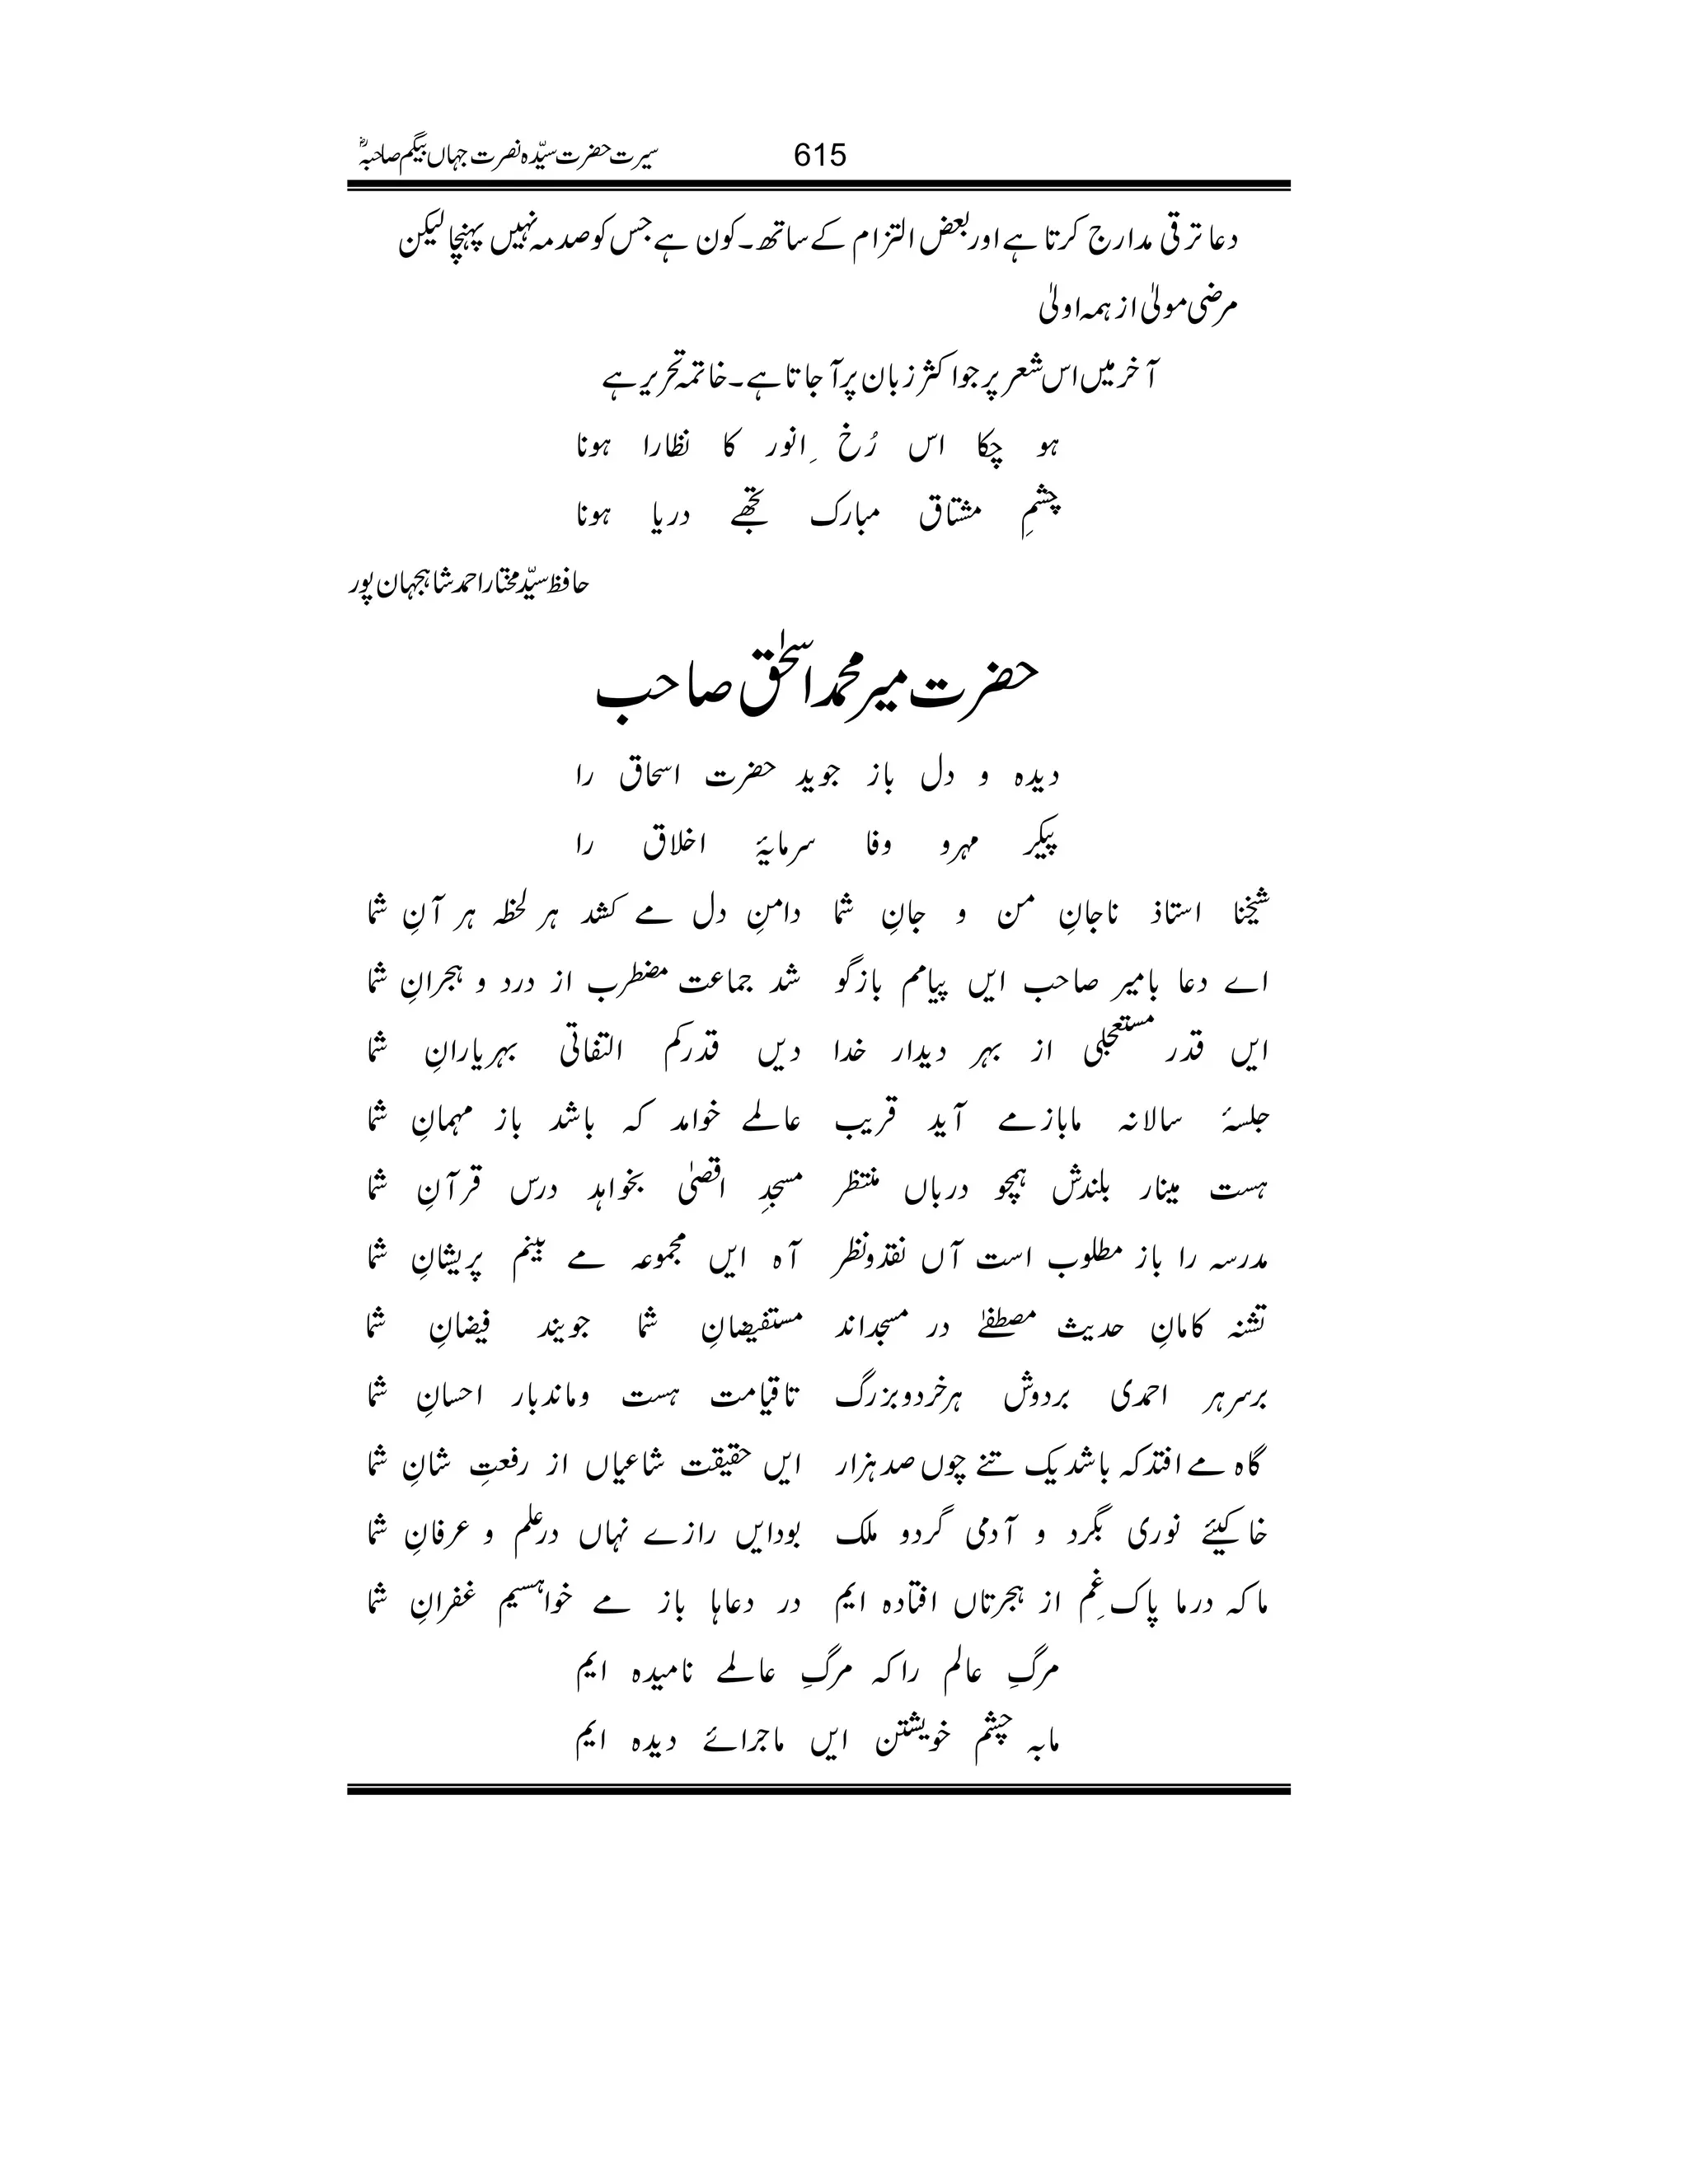 سیرت حضرت سیّدہ نصرت جہاں بیگم صاحبہؓ 615
دعا ترقی مدارج کرتا ہے اور بعض التزام کے ساتھ۔ کون ہے جس کو صدمہ نہیں پہنچا لیکن
مرضی مولیٰ از ہمہ اولیٰ
آخر میں اس شعر پر جو اکثر زبان پر آ جاتا ہے۔ خاتمہ تحریر ہے
ہو چکا اس رُخِ انور کا نظارا ہونا
چشمِ مشتاق مبارک تجھے دریا ہونا
حافظ سیّد مختار احمد شاہجہان پور
حضرت میر محمد اسحٰق صاحب
دیدہ و دل باز جوید حضرت اسحاق را
پیکر مہرو وفا سرمایۂ اخلاق را
شیخنا استاذ ناجانِ من و جانِ شما دامنِ دل مے کشد ہر لحظہ ہر آنِ شما
اے دعا بامیر صاحب ایں پیامم بازگو شد جماعت مضطرب از درد و ہجرانِ شما
ایں قدر مستعجلی از بہر دیدار خدا دیں قدرکم التفاتی بہریارانِ شما
جلسۂ سالانہ مابازمے آید قریب عالمے خوامد کہ باشد باز مہمانِ شما
ہست مینار بلندش ہمچو درباں منتظر مسجدِ اقصٰی بخواہد درس قرآنِ شما
مدرسہ را باز مطلوب است آں نقدونظر آہ ایں مجموعہ مے بینم پریشانِ شما
تشنہ کامانِ حدیث مصطفےٰ در مسجداند مستفیضانِ شما جویند فیضانِ شما
برسرہر احمدی بردوش ہرخردوبزرگ تاقیامت ہست وماندبار احسانِ شما
گاہ مے افتدکہ باشد یک تنے چوں صد ہزار ایں حقیقت شاعیاں از رفعتِ شانِ شما
خاکیئے نوری بگرد و آدمی گردو ملک بودایں رازے نہاں درعلم و عرفانِ شما
ماکہ درما پاک ِغم از ہجرتاں افتادہ ایم در دعاہا باز مے خواہسیم غفرانِ شما
مرگِ عالم راکہ مرگِ عالمے نامیدہ ایم
مابہ چشم خویشتن ایں ماجرائے دیدہ ایم